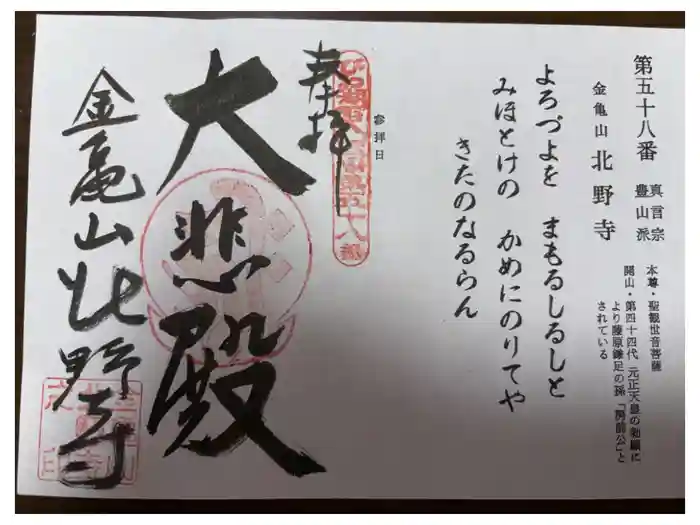 第五十八番
真言宗
豊山派
金亀山 北野寺
本尊・聖観世音菩薩
開山・第四十四代 元正天皇の勅願に
より藤原鎌足の孫「房前公」と
されている
よろづよを まもるしるしと
みほとけの かめにのりてや
きたのなるらん
参拝日
奉拝
大悲殿
金亀山北野寺